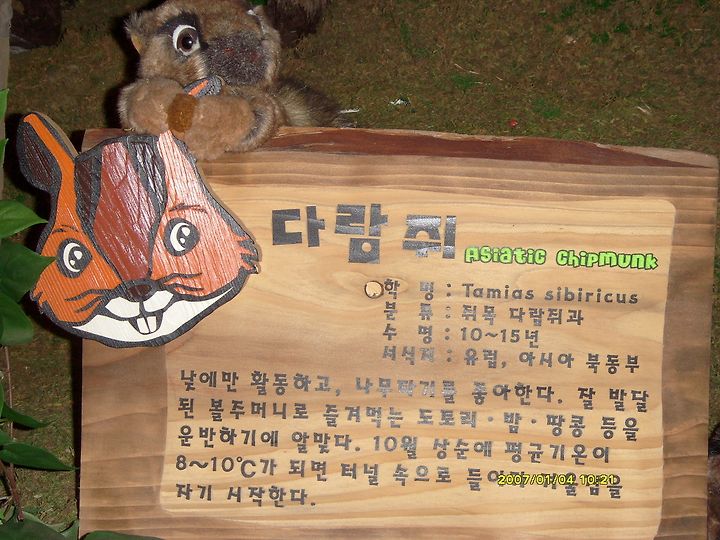 다람쥐 Asiatic Chipmunk
학 명 : Tamias sibiricus
분 류 : 쥐목 다람쥐과
수 명 : 10~15년
서식지 : 유럽, 아시아 북동부
낮에만 활동하고, 나무타기를 좋아한다. 잘 발달
된 볼주머니로 즐겨먹는 도토리·밤·땅콩 등을
운반하기에 알맞다. 10월 상순에 평균기온이
8~10℃가 되면 터널 속으로 들어가 겨울잠을
자기 시작한다.
2007/01/04 10:21